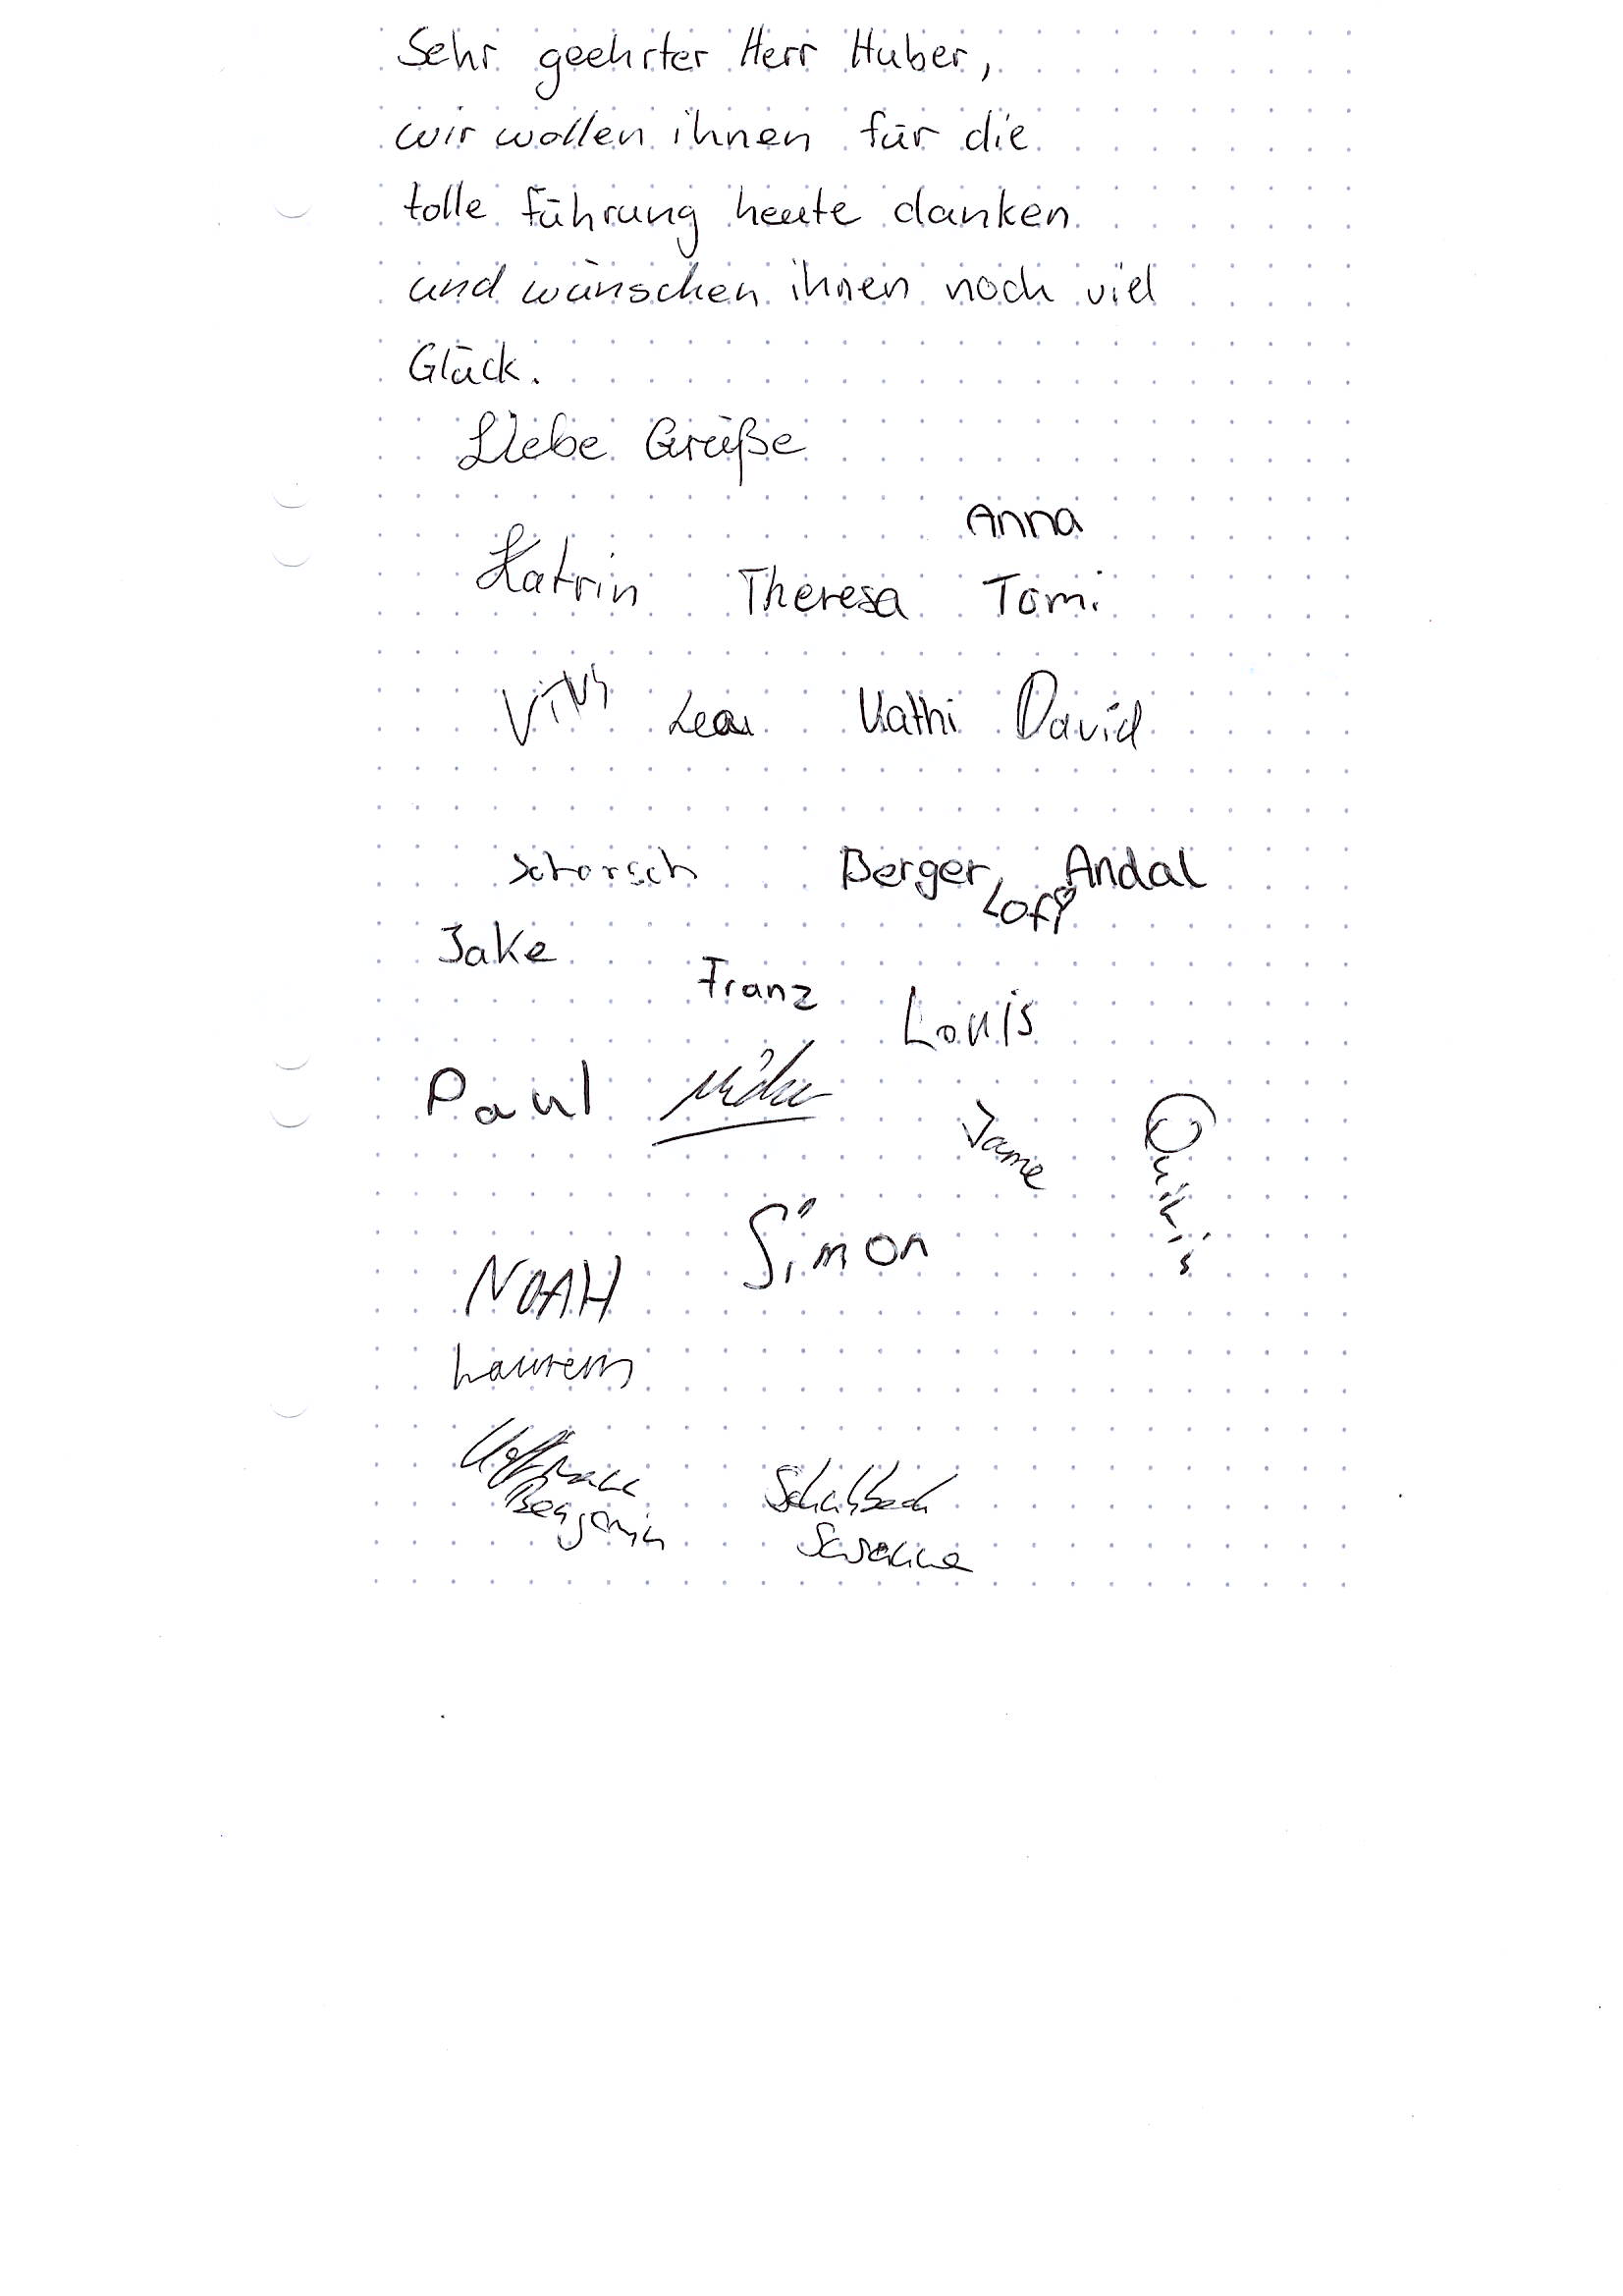 Sehr geehrter Herr Huber,
wir wollen ihnen für die
tolle Führung heute danken
und wünschen ihnen noch viel
Glück.
Liebe Grüße
Anna
Katrin Theresa Tomi
Vitus Lea Kathi David
Schorsch Berger Andal
Lofi
Jake
Franz
Louis
Paul
Jame
Simon
NOAH
Laurenz
Hoffmann
Benjamin
Susanne